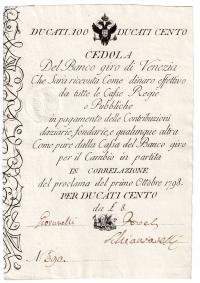 DUCATI 100 DUCATI CENTO
CEDOLA
Del Banco giro di Venezia
Che Sarà ricevuta Come dinaro effettivo
da tutte le Casse Regie
e Pubbliche
in pagamento delle Contribuzioni
daziarie, fondarie, e qualunque altra
Come pure dalla Cassa del Banco giro
per il Cambio in partita
IN CORRELAZIONE
del proclama del primo Ottobre 1798.
PER DUCATI CENTO
da £ 8.
Giovanelli
N.